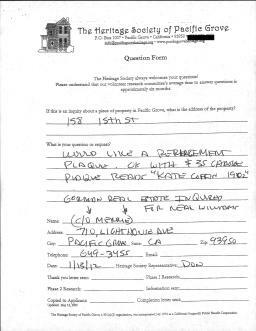 The Heritage Society of Pacific Grove
P.O. Box 1007 • Pacific Grove • California • 93950
info@pacificgroveheritage.org • www.pacificgroveheritage.org
Question Form
The Heritage Society always welcomes your questions!
Please understand that our volunteer research committee's average time to answer questions is
approximately six months
If this is an inquiry about a piece of property in Pacific Grove, what is the address of the property?
158 15th St
What is your question or request?
WOULD LIKE A REPLACEMENT
PLAQUE. OK WITH $35 CHARGE
PLAQUE READS "KATE COFFIN 1902"
GORDON REAL ESTATE INQUIRED
FOR NEAL
Name (C/O MERRIE)
Address 710, LIGHTHOUSE AVE
City PACIFIC GROVE State CA Zip 93950
Telephone 649-3455 Email
Date 1/18/12 Heritage Society Representative: DON
Thank you letter sent: Phase 1 Research:
Phase 2 Research: Information sent:
Copied to Applicant: Completion letter sent: